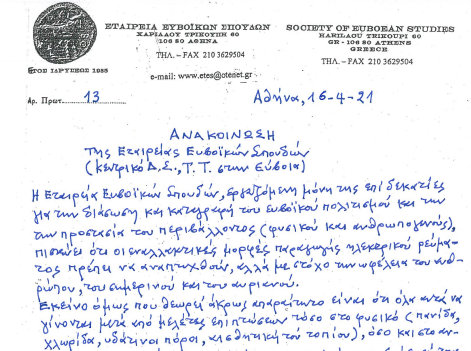 ΕΤΑΙΡΕΙΑ ΕΥΒΟΪΚΩΝ ΣΠΟΥΔΩΝ
ΧΑΡΙΛΑΟΥ ΤΡΙΚΟΥΠΗ 60
106 80 ΑΘΗΝΑ
ΤΗΛ. – FAX 210 3629504
SOCIETY OF EUBOEAN STUDIES
HARILAOU TRIKOUPI 60
GR - 106 80 ATHENS
GREECE
ΤΗΛ. – FAX 210 3629504
ΕΤΟΣ ΙΔΡΥΣΕΩΣ 1935
e-mail: www.etes@otenet.gr
Αρ. Πρωτ. 13
Αθήνα, 16-4-21
ΑΝΑΚΟΙΝΩΣΗ
Της Εταιρείας Ευβοϊκών Σπουδών
(Κεντρικό Δ.Σ., Τ.Τ. στην Εύβοια)
Η Εταιρεία Ευβοϊκών Σπουδών, εργαζόμενη μόνη της επί δεκαετίες
για την διάσωση και καταγραφή του ευβοϊκού πολιτισμού και την
την προστασία του περιβάλλοντος (φυσικού και ανθρωπογενούς),
πιστεύει ότι οι εναλλακτικές μορφές παραγωγής ηλεκρικού ρεύμα-
τος πρέπει να αναπτυχθούν, αλλά με στόχο την ωφέλεια του αν-
θρώπου, του σημερινού και του αυριανού.
Εκείνο όμως που θεωρεί άκρως απαραίτητο είναι ότι όλα αυτά να
γίνονται μετά από μελέτες επιπτώσεων τόσο στο φυσικό (πανίδα,
χλωρίδα, υδάτινοι πόροι, αισθητική του τοπίου), όσο και στο αν-